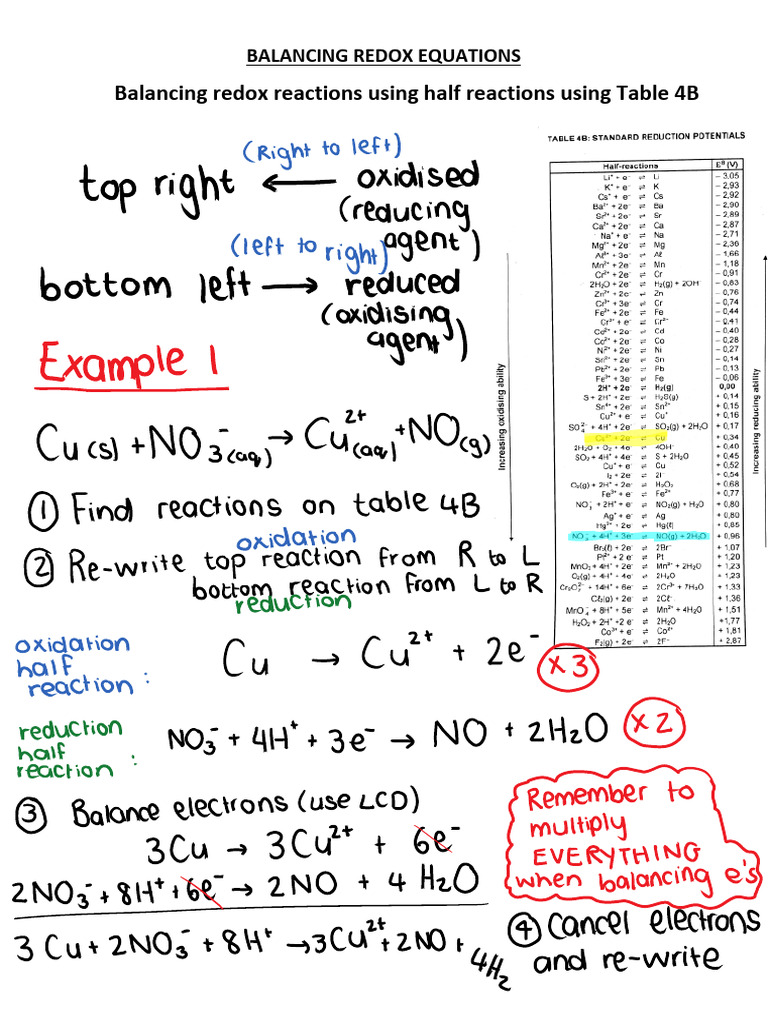 BALANCING REDOX EQUATIONS
Balancing redox reactions using half reactions using Table 4B
(Right to left)
top right ← oxidised
(reducing agent)
(left to right)
bottom left → reduced
(oxidising agent)
Example 1
Cu(s) + NO₃⁻(aq) → Cu²⁺(aq) + NO(g)
① Find reactions on table 4B
oxidation
② Re-write top reaction from R to L
bottom reaction from L to R
reduction
oxidation
half
reaction :
Cu → Cu²⁺ + 2e⁻
x 3
reduction
half
reaction :
NO₃⁻ + 4H⁺ + 3e⁻ → NO + 2H₂O
x 2
③ Balance electrons (use LCD)
3Cu → 3Cu²⁺ + 6e⁻
2NO₃⁻ + 8H⁺ + 6e⁻ → 2NO + 4H₂O
3Cu + 2NO₃⁻ + 8H⁺ → 3Cu²⁺ + 2NO + 4H₂
Remember to
multiply
EVERYTHING
when balancing e's
④ Cancel electrons
and re-write
TABLE 4B: STANDARD REDUCTION POTENTIALS
Half-reactions E⁰ (V)
Li⁺ + e⁻ ⇌ Li − 3,05
K⁺ + e⁻ ⇌ K − 2,93
Cs⁺ + e⁻ ⇌ Cs − 2,92
Ba²⁺ + 2e⁻ ⇌ Ba − 2,90
Sr²⁺ + 2e⁻ ⇌ Sr − 2,89
Ca²⁺ + 2e⁻ ⇌ Ca − 2,87
Na⁺ + e⁻ ⇌ Na − 2,71
Mg²⁺ + 2e⁻ ⇌ Mg − 2,36
Aℓ³⁺ + 3e⁻ ⇌ Aℓ − 1,66
Mn²⁺ + 2e⁻ ⇌ Mn − 1,18
Cr²⁺ + 2e⁻ ⇌ Cr − 0,91
2H₂O + 2e⁻ ⇌ H₂(g) + 2OH⁻ − 0,83
Zn²⁺ + 2e⁻ ⇌ Zn − 0,76
Cr³⁺ + 3e⁻ ⇌ Cr − 0,74
Fe²⁺ + 2e⁻ ⇌ Fe − 0,44
Cr³⁺ + e⁻ ⇌ Cr²⁺ − 0,41
Cd²⁺ + 2e⁻ ⇌ Cd − 0,40
Co²⁺ + 2e⁻ ⇌ Co − 0,28
Ni²⁺ + 2e⁻ ⇌ Ni − 0,27
Sn²⁺ + 2e⁻ ⇌ Sn − 0,14
Pb²⁺ + 2e⁻ ⇌ Pb − 0,13
Fe³⁺ + 3e⁻ ⇌ Fe − 0,06
2H⁺ + 2e⁻ ⇌ H₂(g) 0,00
S + 2H⁺ + 2e⁻ ⇌ H₂S(g) + 0,14
Sn⁴⁺ + 2e⁻ ⇌ Sn²⁺ + 0,15
Cu²⁺ + e⁻ ⇌ Cu⁺ + 0,16
SO₄²⁻ + 4H⁺ + 2e⁻ ⇌ SO₂(g) + 2H₂O + 0,17
Cu²⁺ + 2e⁻ ⇌ Cu + 0,34
2H₂O + O₂ + 4e⁻ ⇌ 4OH⁻ + 0,40
SO₂ + 4H⁺ + 4e⁻ ⇌ S + 2H₂O + 0,45
Cu⁺ + e⁻ ⇌ Cu + 0,52
I₂ + 2e⁻ ⇌ 2I⁻ + 0,54
O₂(g) + 2H⁺ + 2e⁻ ⇌ H₂O₂ + 0,68
Fe³⁺ + e⁻ ⇌ Fe²⁺ + 0,77
NO₃⁻ + 2H⁺ + e⁻ ⇌ NO₂(g) + H₂O + 0,80
Ag⁺ + e⁻ ⇌ Ag + 0,80
Hg²⁺ + 2e⁻ ⇌ Hg(ℓ) + 0,85
NO₃⁻ + 4H⁺ + 3e⁻ ⇌ NO(g) + 2H₂O + 0,96
Br₂(ℓ) + 2e⁻ ⇌ 2Br⁻ + 1,07
Pt²⁺ + 2e⁻ ⇌ Pt + 1,20
MnO₂ + 4H⁺ + 2e⁻ ⇌ Mn²⁺ + 2H₂O + 1,23
O₂(g) + 4H⁺ + 4e⁻ ⇌ 2H₂O + 1,23
Cr₂O₇²⁻ + 14H⁺ + 6e⁻ ⇌ 2Cr³⁺ + 7H₂O + 1,33
Cℓ₂(g) + 2e⁻ ⇌ 2Cℓ⁻ + 1,36
MnO₄⁻ + 8H⁺ + 5e⁻ ⇌ Mn²⁺ + 4H₂O + 1,51
H₂O₂ + 2H⁺ + 2e⁻ ⇌ 2H₂O + 1,77
Co³⁺ + e⁻ ⇌ Co²⁺ + 1,81
F₂(g) + 2e⁻ ⇌ 2F⁻ + 2,87
Increasing oxidising ability
Increasing reducing ability